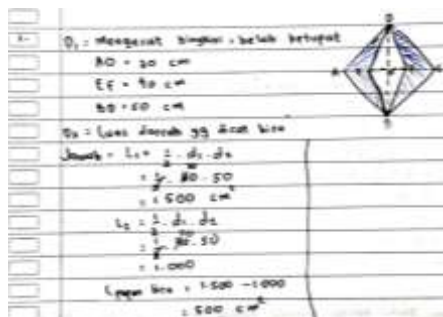 1. D₁ = Mengecat bingkai, belah ketupat
AO = 30 cm
EF = 40 cm
BD = 50 cm
D₂ = Luas daerah yg dicat biru
Jawab = L₁ = 1/2 . d₁ . d₂
= 1/2 . 60 . 50
= 1.500 cm²
L₂ = 1/2 . d₁ . d₂
= 1/2 . 50
= 1.000
L papan biru = 1.500 - 1.000
= 500 cm²